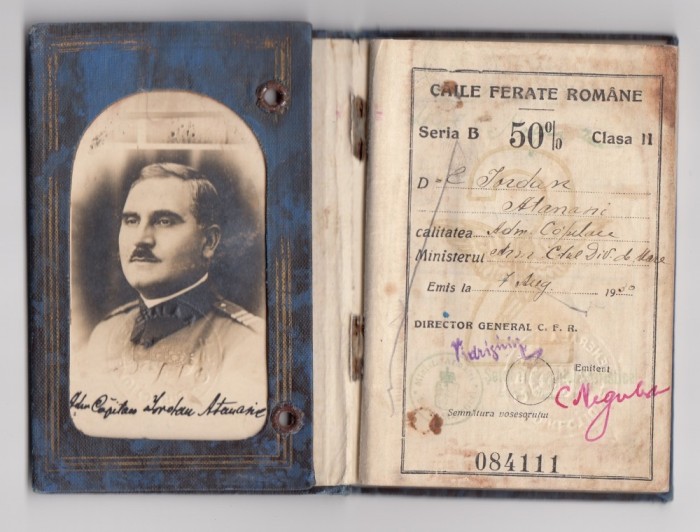 Adm Căpitan Iordan Atanasie
CĂILE FERATE ROMÂNE
Seria B 50% Clasa II
D-l Iordan
Atanasie
calitatea Adm. Căpitan
Ministerul Ctul Div. de
Emis la 7 Aug 19
DIRECTOR GENERAL C. F. R.
Emitent
C Negulescu
Semnătura posesorului
084111